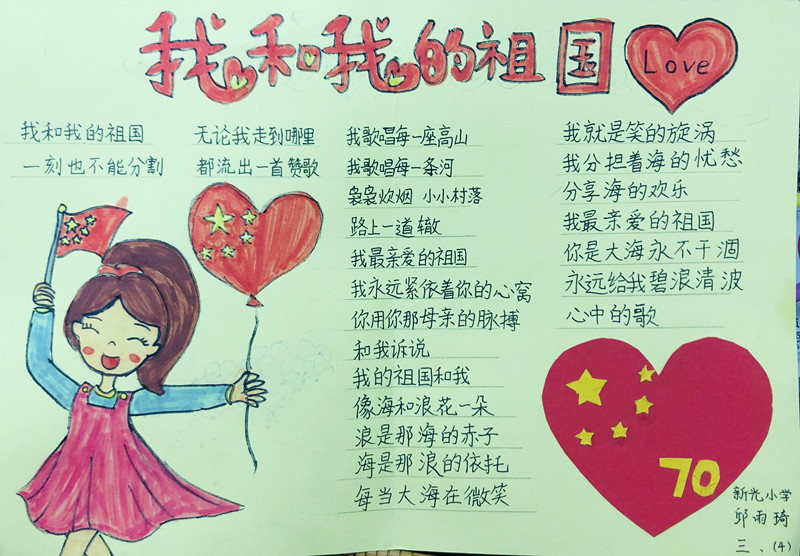 我和我的祖国
Love
我和我的祖国
一刻也不能分割
无论我走到哪里
都流出一首赞歌
我歌唱每一座高山
我歌唱每一条河
袅袅炊烟 小小村落
路上一道辙
我最亲爱的祖国
我永远紧依着你的心窝
你用你那母亲的脉搏
和我诉说
我的祖国和我
像海和浪花一朵
浪是那海的赤子
海是那浪的依托
每当大海在微笑
我就是笑的旋涡
我分担着海的忧愁
分享海的欢乐
我最亲爱的祖国
你是大海永不干涸
永远给我碧浪清波
心中的歌
70
新光小学
邱雨琦
三、(4)